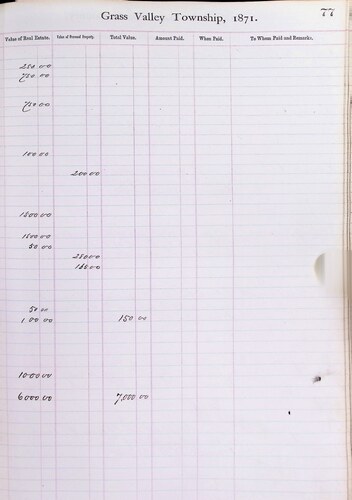 Grass Valley Township, 1871.
77
Value of Real Estate. Value of Personal Property. Total Value. Amount Paid. When Paid. To Whom Paid and Remarks.
250 00
750 00
750 00
100 00
200 00
1800 00
1500 00
50 00
250 00
150 00
50 00
100 00 150 00
1000 00
6000 00 7,000 00